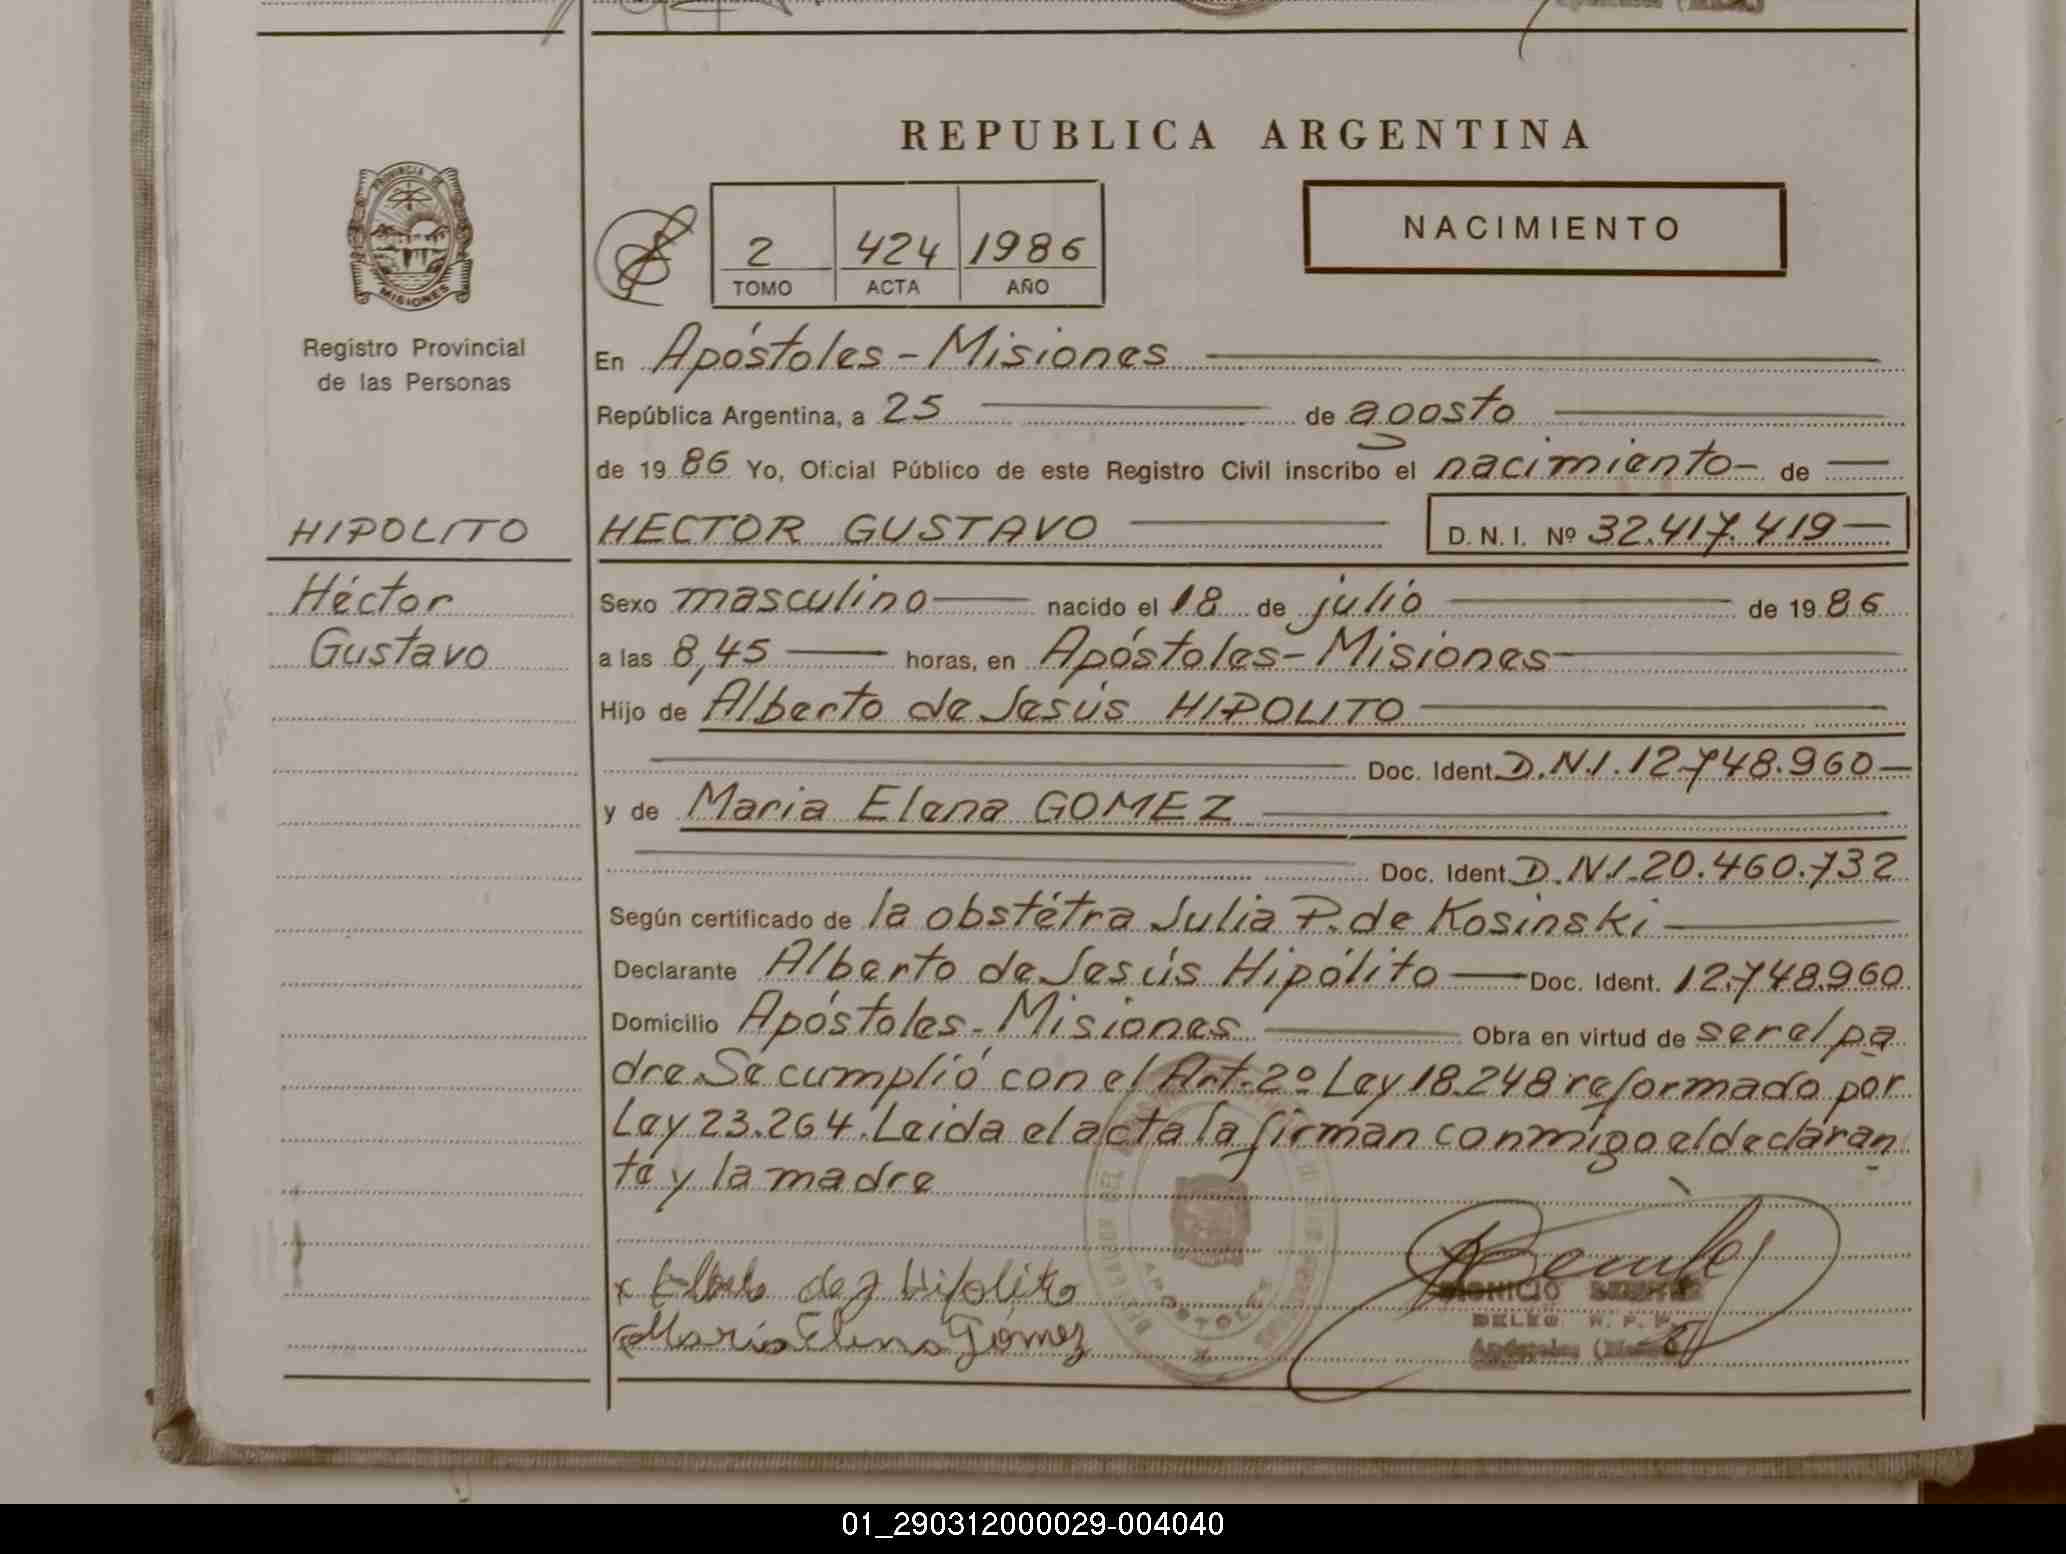 REPUBLICA ARGENTINA
PROVINCIA DE
MISIONES
Registro Provincial
de las Personas
2 424 1986
TOMO ACTA AÑO
NACIMIENTO
En Apóstoles - Misiones
República Argentina, a 25 de agosto
de 1986 Yo, Oficial Público de este Registro Civil inscribo el nacimiento - de
HIPOLITO
HECTOR GUSTAVO D. N. I. Nº 32.417.419
Héctor
Gustavo
Sexo masculino nacido el 18 de julio de 1986
a las 8,45 horas, en Apóstoles - Misiones
Hijo de Alberto de Jesús HIPOLITO
Doc. Ident. D.N.I. 12.748.960
y de Maria Elena GOMEZ
Doc. Ident. D.N.I. 20.460.732
Según certificado de la obstétra Julia P. de Kosinski
Declarante Alberto de Jesús Hipólito Doc. Ident. 12.748.960
Domicilio Apóstoles - Misiones Obra en virtud de ser el pa
dre. Se cumplió con el Art. 2º Ley 18.248 reformado por
Ley 23.264. Leida el acta la firman conmigo el declaran
te y la madre
Hipolito
Maria Elena Gómez
APOSTOLES
DIONICIO
DELEG. R. P. P.
Apóstoles
01_290312000029-004040